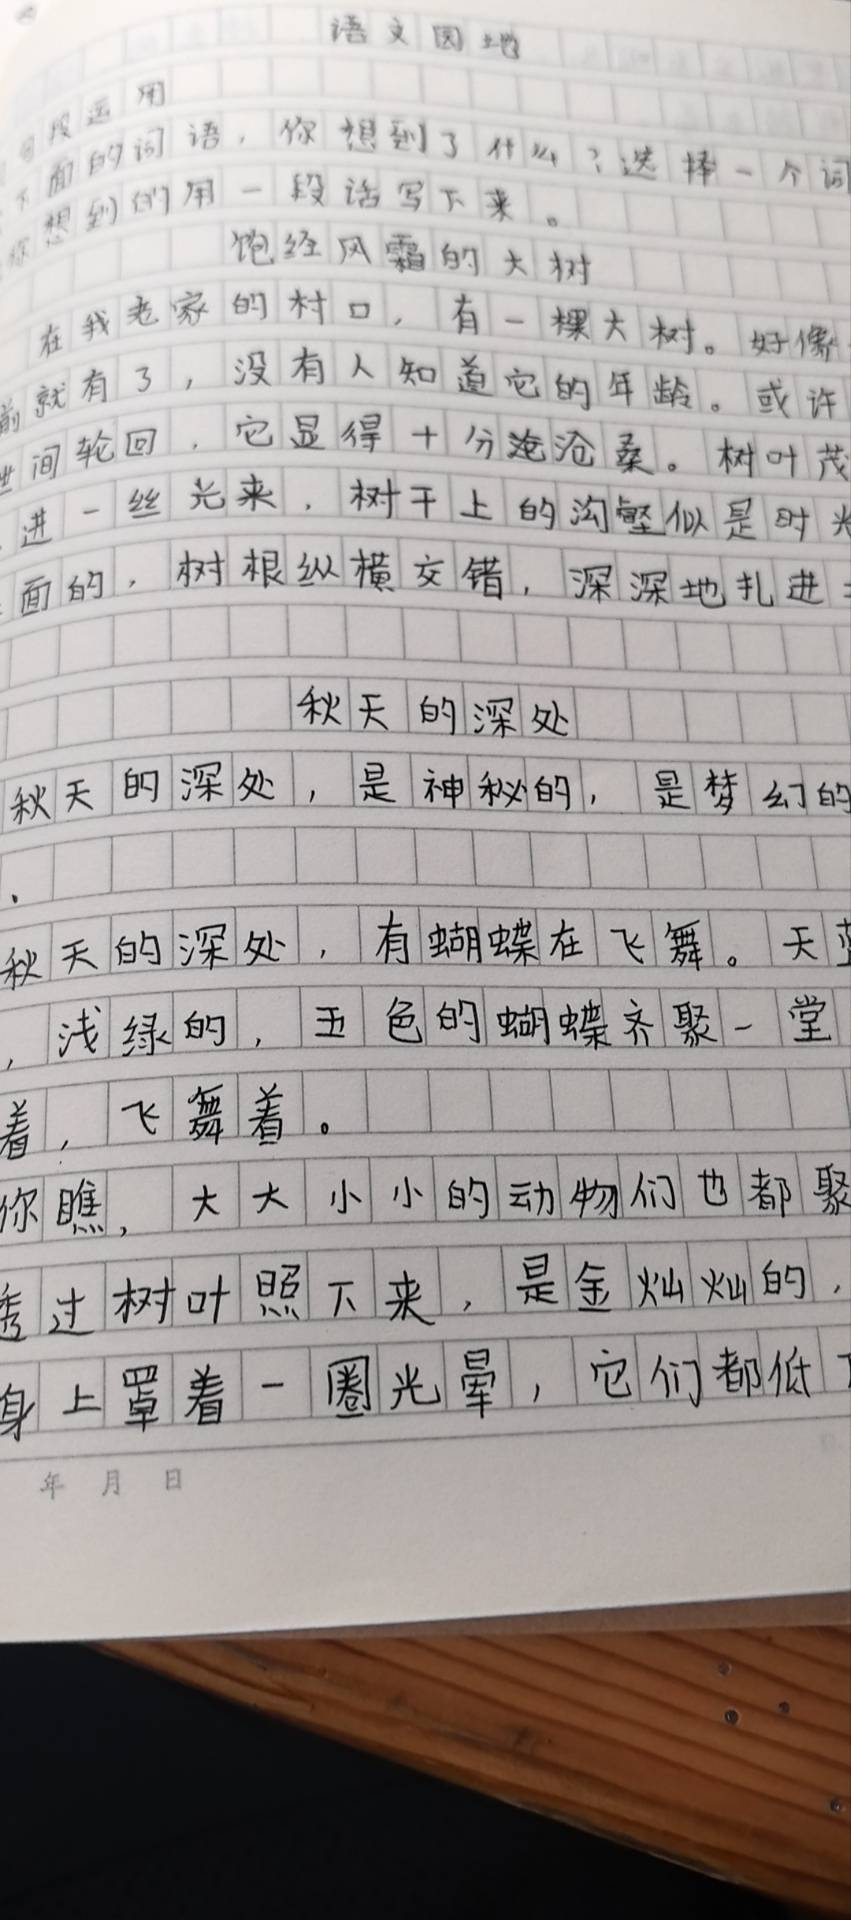 语文园地
句段运用
下面的词语，你想到了什么？选择一个词
你想到的用一段话写下来。
饱经风霜的大树
在我老家的村口，有一棵大树。好像
前就有了，没有人知道它的年龄。或许
世间轮回，它显得十分沧桑。树叶茂
进一丝光来，树干上的沟壑似是时光
面的，树根纵横交错，深深地扎进
秋天的深处
秋天的深处，是神秘的，是梦幻的
秋天的深处，有蝴蝶在飞舞。天蓝
，浅绿的，五色的蝴蝶齐聚一堂
着，飞舞着。
你瞧，大大小小的动物们也都聚
透过树叶照下来，是金灿灿的，
身上罩着一圈光晕，它们都低下
年 月 日